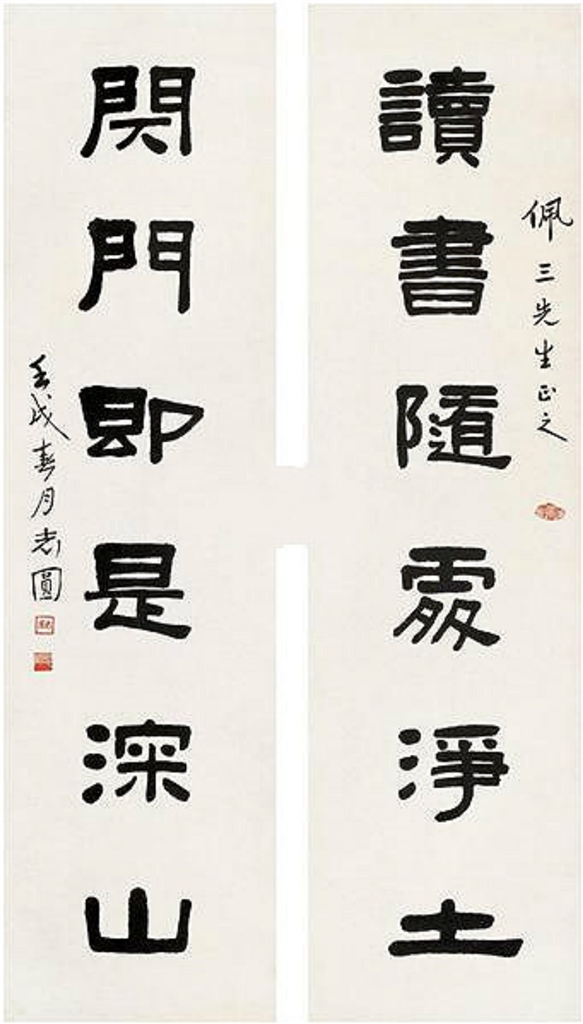 佩三先生正之
讀書隨處淨土
閉門即是深山
壬戌春月老圓